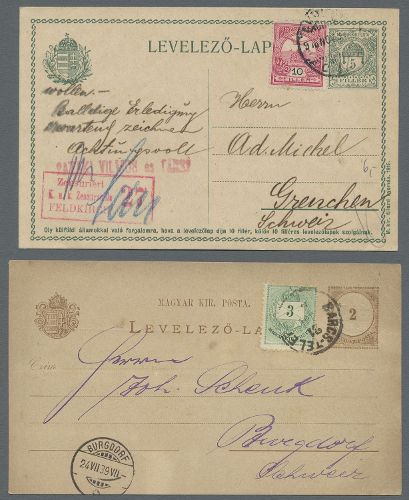 LEVELEZŐ-LAP
10
FILLÉR
5
FILLÉR
wollen.—
Balldige Erledigung
erwartend zeichne
Achtungsvoll
Herrn
Ad. Michel
Grenchen
Schweiz
Zensuriert
K. u. K. Zensurstelle
27
FELDKIRCH
Oly külföldi államokkal való forgalomra, hova a levelezőlap díja 10 fillér, külön 10 filléres levelezőlapok szolgálnak.
MAGYAR KIR. POSTA.
LEVELEZŐ-LAP
3
2
Czim:
Herrn
Joh. Schenk
Burgdorf
Schweiz
BURGDORF
24 VII 89 VII